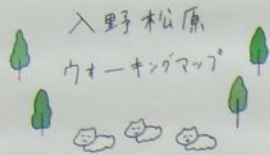 入野松原
ウォーキングマップ